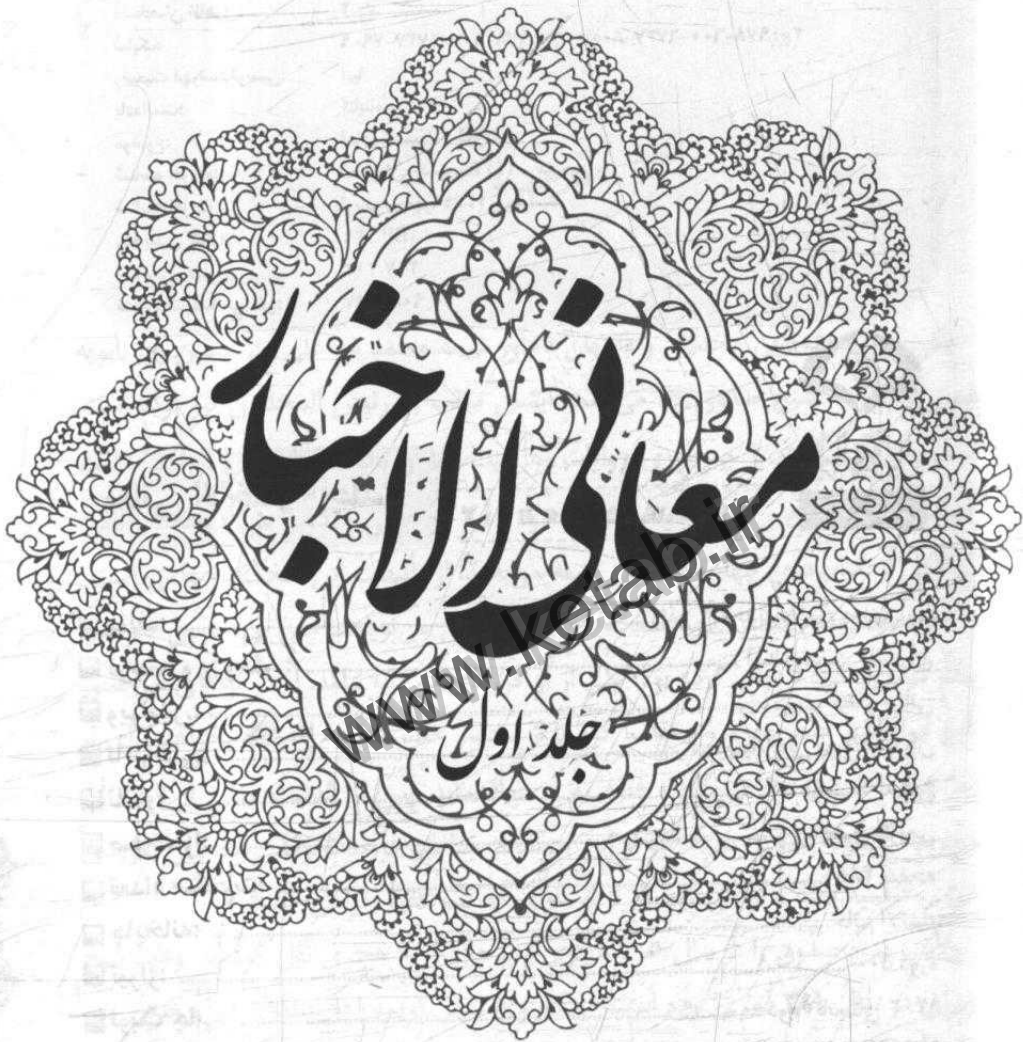 معانی الاخبار
جلد اول
www.ketab.ir